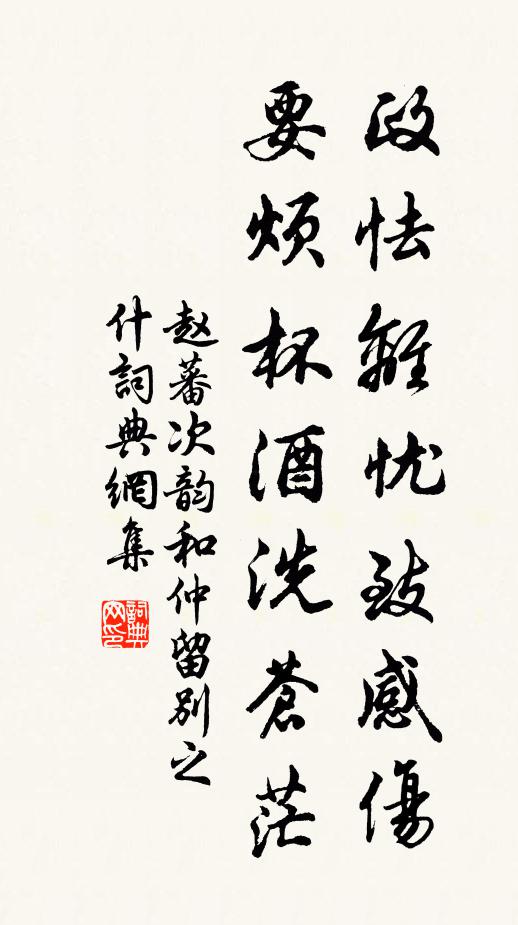 政怯離忧致感傷
要煩杯酒洗蒼茫
赵蕃次韵和仲留别之
什詞典網集
詞典网印